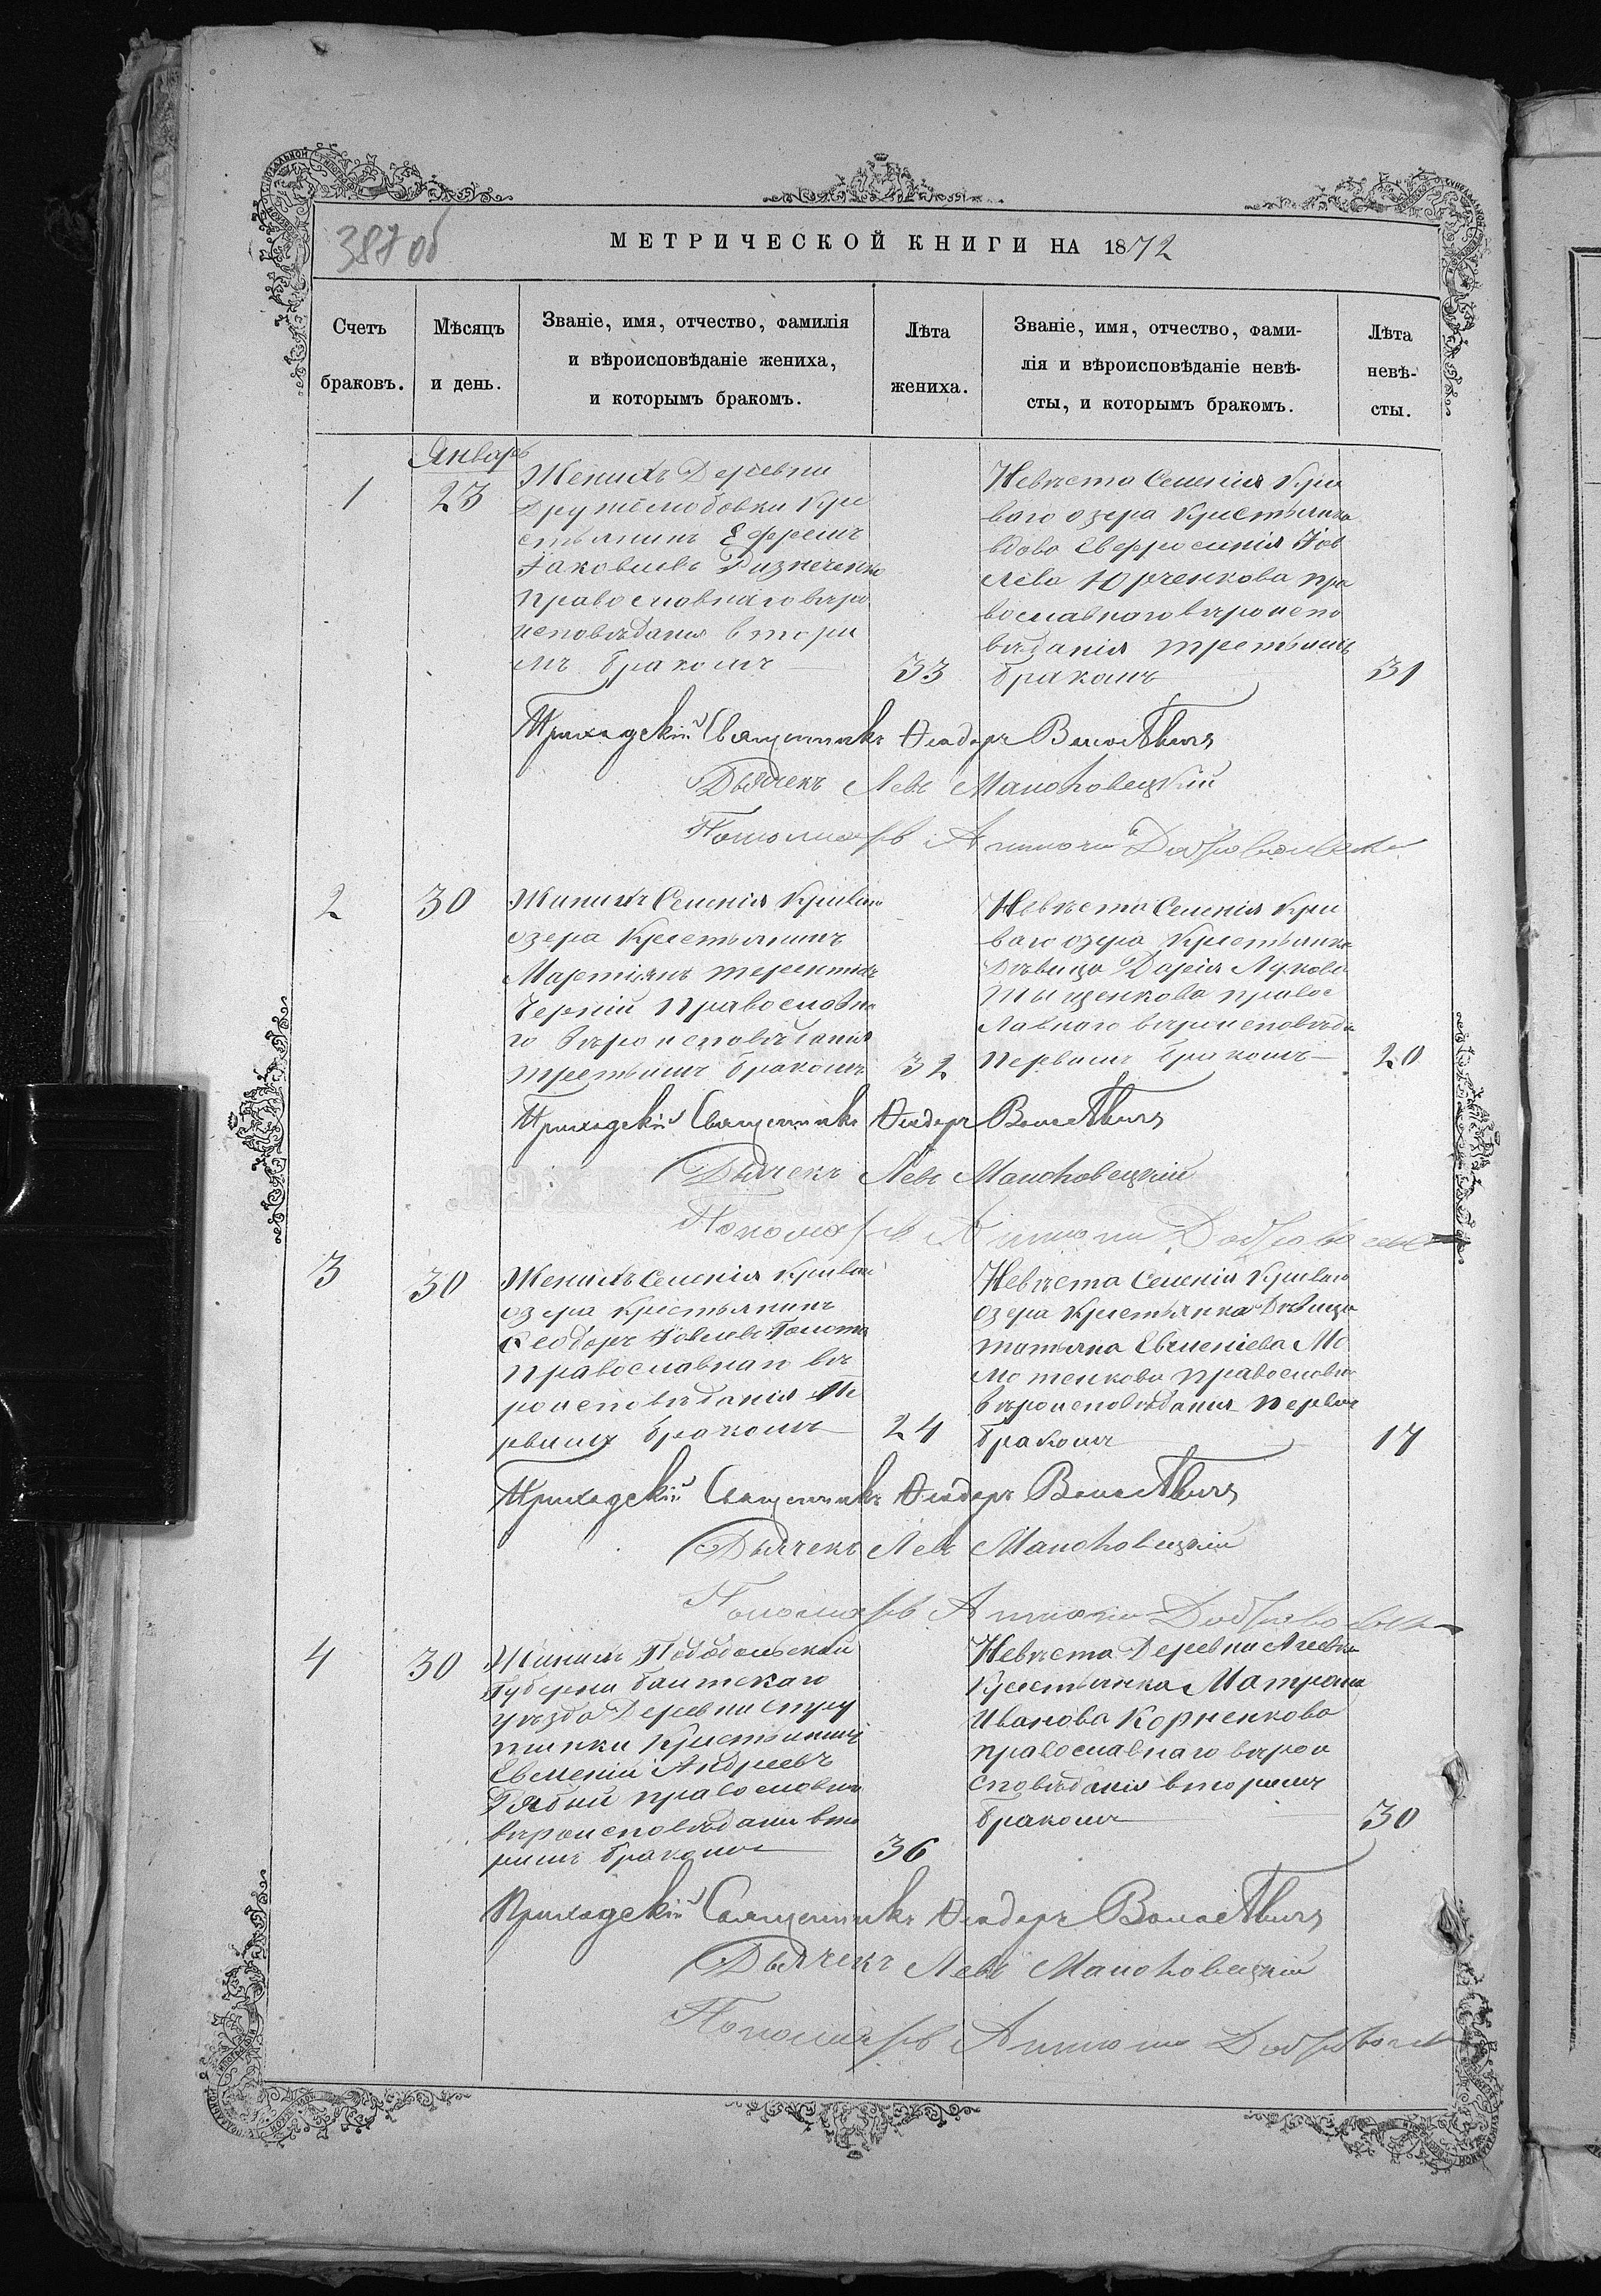 387 об
МЕТРИЧЕСКОЙ КНИГИ НА 1872
Счетъ
браковъ.
Мѣсяцъ
и день.
Званіе, имя, отчество, фамилія
и вѣроисповѣданіе жениха,
и которымъ бракомъ.
Лѣта
жениха.
Званіе, имя, отчество, фами-
лія и вѣроисповѣданіе невѣ-
сты, и которымъ бракомъ.
Лѣта
невѣ-
сты.
Январь
1
23
Женихъ Деревни
Дружелюбовки Кре
стьянинъ Ефремъ
Іаковлевъ
Православнаго вѣро
исповѣданія втори
мъ бракомъ
33
Невѣста Селенія Кри
ваго озера Крестьянка
вдова Евфросинія Іов
лева Юрченкова пра
вославнаго вѣроиспо
вѣданія третьимъ
бракомъ
31
Приходскій Священникъ Ѳеодоръ
Дьячекъ Левъ Маньковецкій
Пономарь Антоній Добровольскій
2
30
Жинихъ Селенія Криваго
озера Крестьянинъ
Мартіянъ терентіевъ
Черній Православна
го вѣроисповѣданія
третьимъ бракомъ
32
Невѣста Селенія Кри
ваго озера Крестьянка
Дѣвица Дарія Лукова
Тыщенкова правос
лавнаго вѣроисповѣда
первымъ бракомъ
20
Приходскій Священникъ Ѳеодоръ
Дьячекъ Левъ Маньковецкій
Пономарь Антоній
3
30
Женихъ Селенія Криваго
озера Крестьянинъ
Ѳеодоръ Іовлевъ Голота
Православнаго вѣ
роисповѣданія пе
рвымъ бракомъ
24
Невѣста Селенія Криваго
озера Крестьянка Дѣвица
татьяна Евменіева Мо
Православна
вѣроисповѣданія первым
бракомъ
17
Приходскій Священникъ Ѳеодоръ
Дьячекъ Левъ Маньковецкій
Пономарь Антоній
4
30
Жинихъ Подольской
Губерни Балтскаго
уѣзда Деревни Стру
тинки Крестьянинъ
Евменій Андреевъ
Рябий православна
вѣроисповѣдани вто
римъ бракомъ
36
Невѣста Деревни
Крестьянка Матрона
Иванова Корненкова
православнаго вѣрои
сповѣданія вторимъ
бракомъ
30
Приходскій Священникъ Ѳеодоръ
Дьячекъ Левъ Маньковецкій
Пономарь Антоній